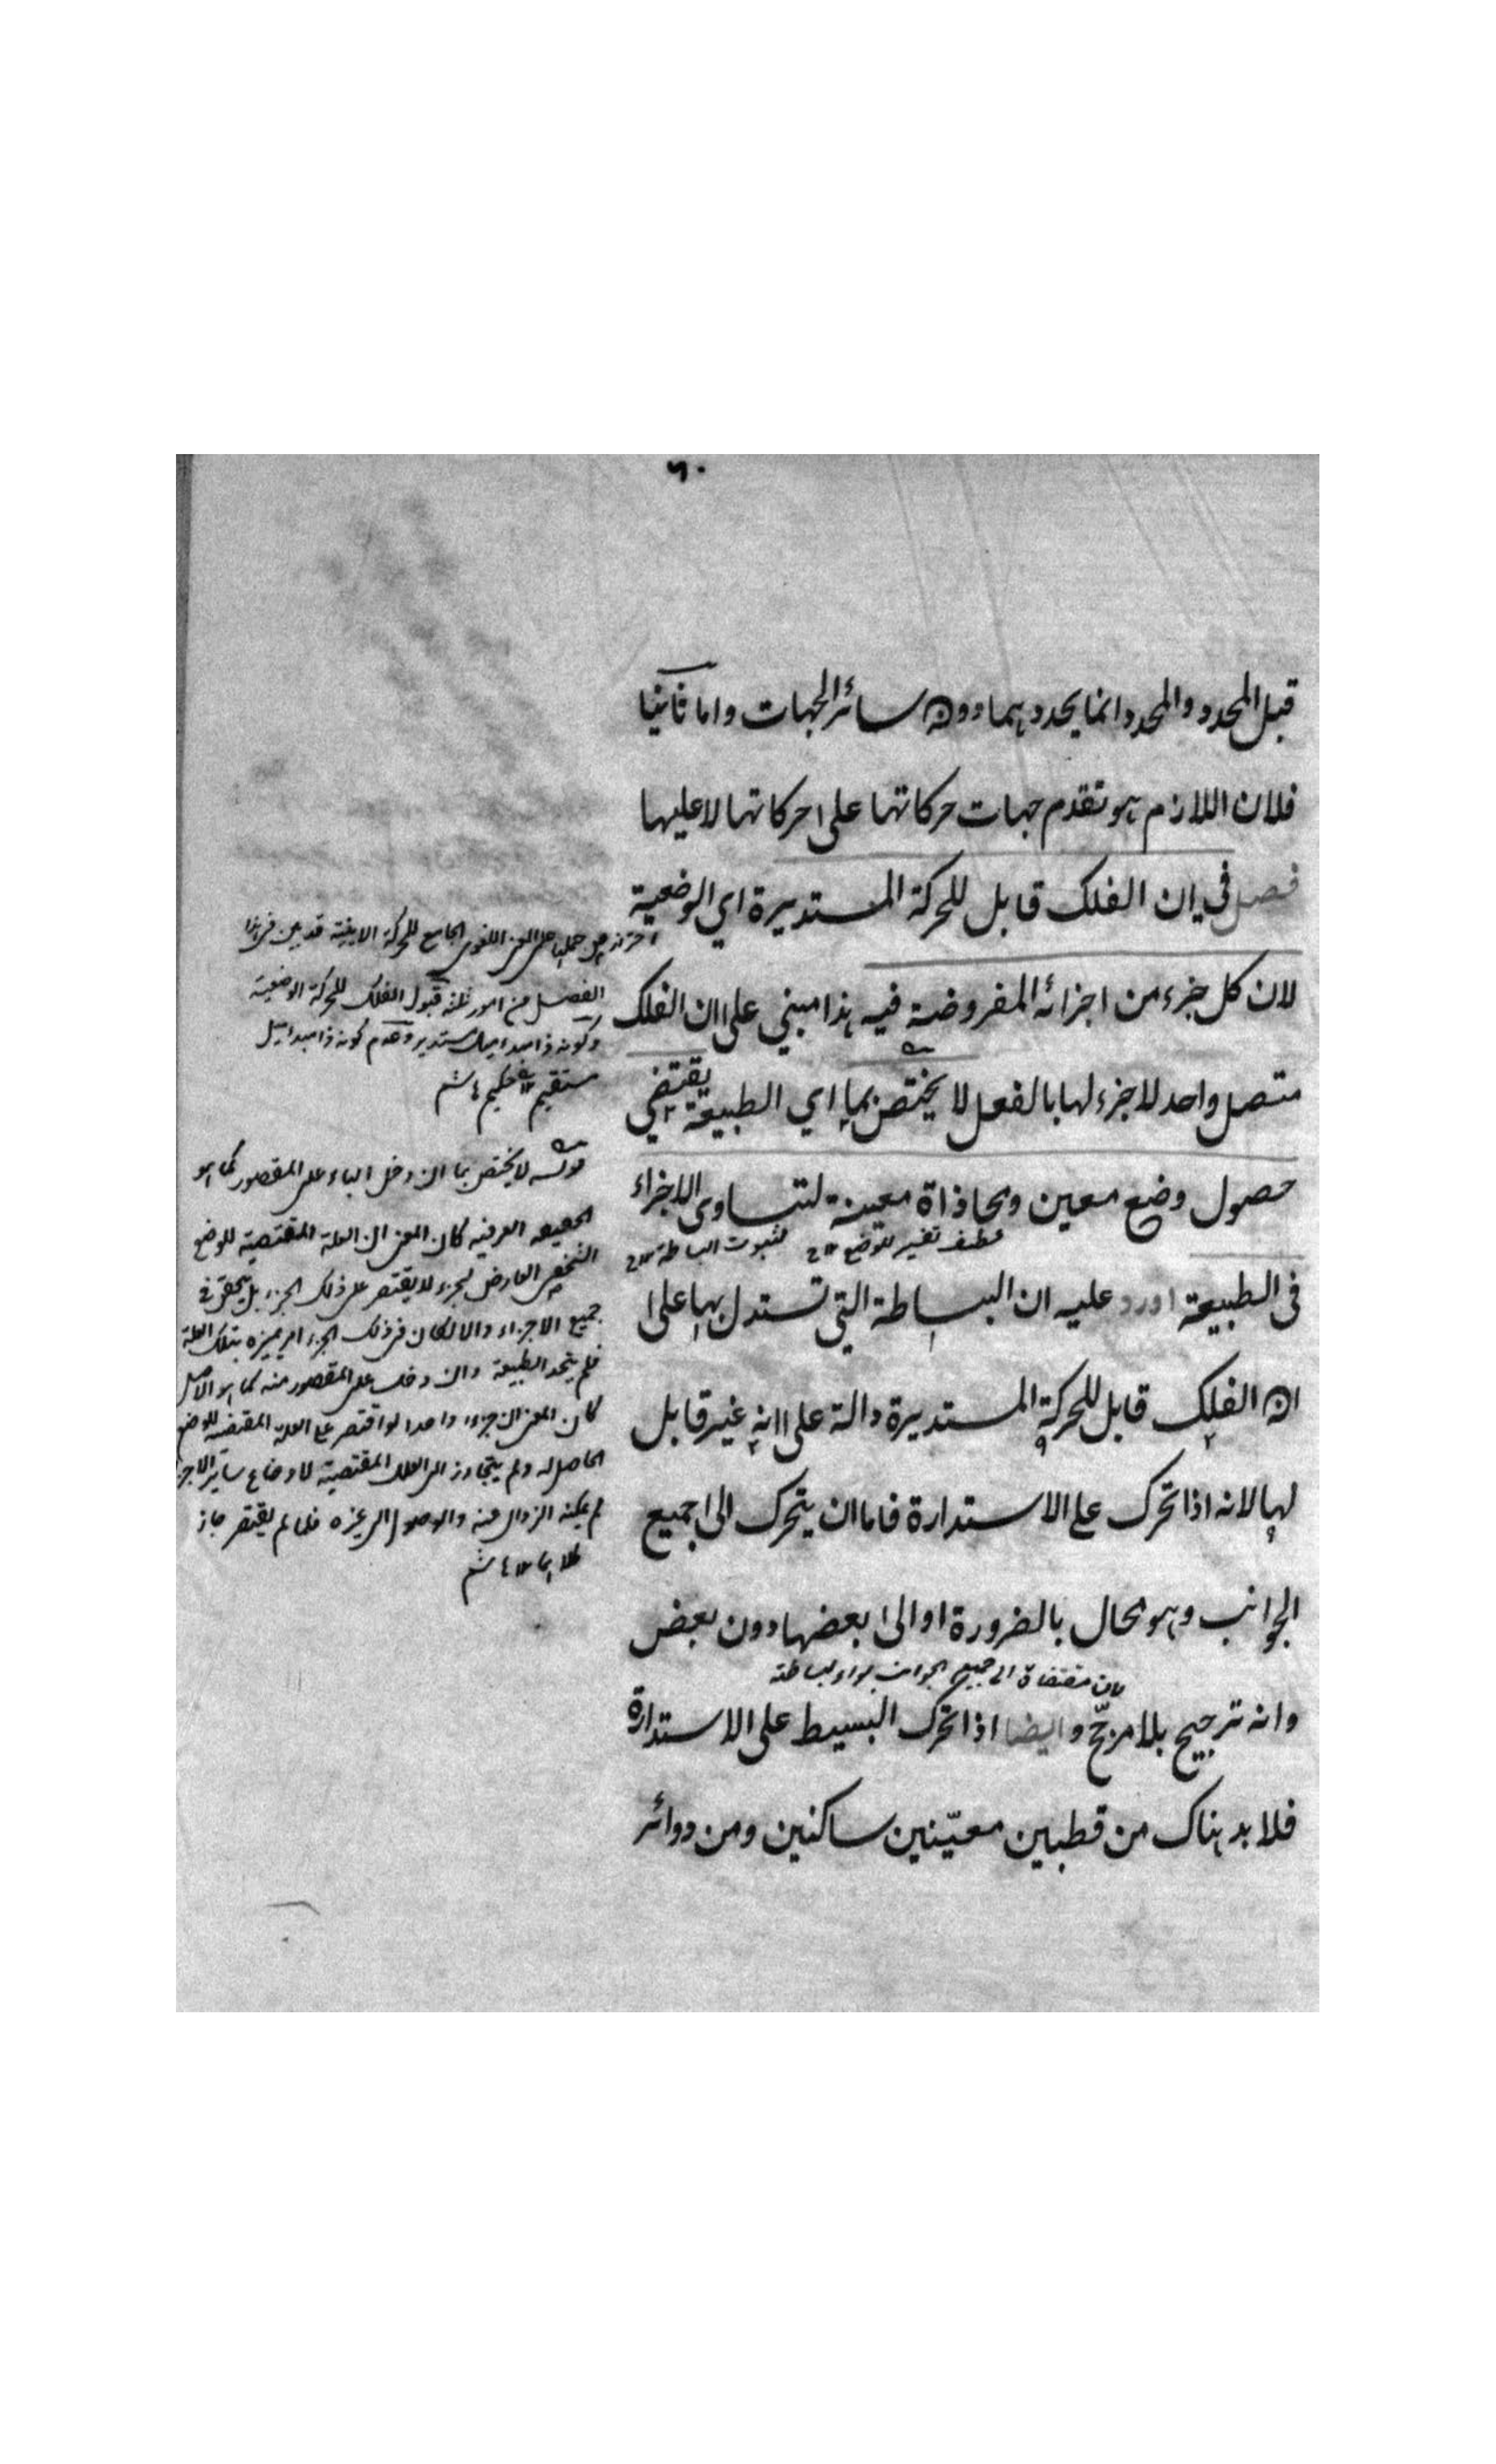 ٦٠
قبل المحدد والمحدد انما يحددهما دون سائر الجهات واما ثانيا
فلان اللازم هو تقدم جهات حركاتهما على حركاتهما لا عليهما
فصل في ان الفلك قابل للحركة المستديرة اي الوضعية
لان كل جزء من اجزائه المفروضة فيه هذا مبني على ان الفلك
متصل واحد لا جزء لها بالفعل لا يختص بما اي الطبيعة يقتضي
حصول وضع معين ومحاذاة معينة لتساوي الاجزاء
عطف تفسير للوضع ١٢ لثبوت البساطة ١٢
في الطبيعة اورد عليه ان البساطة التي تستدل بها على
ان الفلك قابل للحركة المستديرة دالة على انه غير قابل
لها لانه اذا تحرك على الاستدارة فاما ان يتحرك الى جميع
الجوانب وهو محال بالضرورة او الى بعضها دون بعض
لان مقتضاة الى جميع الجوانب سواء لبساطته
وانه ترجيح بلا مرجّح وايضا اذا تحرك البسيط على الاستدارة
فلا بد هناك من قطبين معيّنين ساكنين ومن دوائر
احتراز عن حملها على المعنى اللغوي الجامع للحركة الاينية قد بين في هذا
الفصل من امور ثلثة قبول الفلك للحركة الوضعية
وكونه ذا مبدأ ميل مستدير وعدم كونه ذا مبدأ ميل
مستقيم
قوله لا يختص بما ان دخل الباء على المقصور كما هو
الحقيقة العرفية كان المعنى ان العلة المقتضية للوضع
الشخصي العارض لجزء لا يقتصر على ذلك الجزء بل يتحقق في
جميع الاجزاء والا لكان في ذلك الجزء امر يميزه بتلك العلة
فلم يتحد الطبيعة وان دخلت على المقصور منه كما هو الاصل
كان المعنى ان جزءا واحدا لو اقتصر على العلة المقتضية للوضع
الحاصل له ولم يتجاوز الى العلل المقتضية لاوضاع سائر الاجزاء
لم يمكنه الزوال عنه والوصول الى غيره فلما لم يقتصر جاز